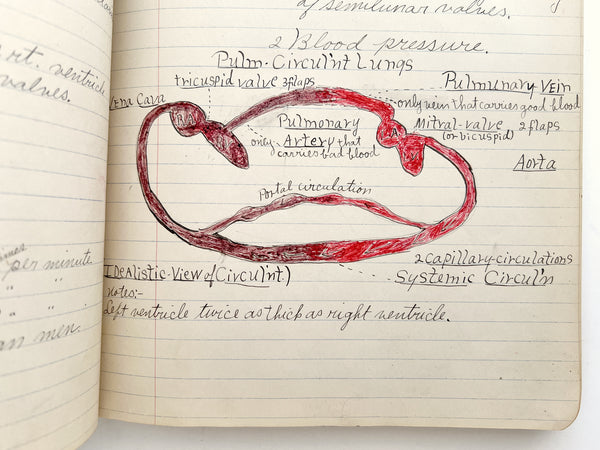 of semilunar valves.
2 Blood pressure.
Pulm. Circul'nt Lungs
tricuspid valve 3flaps
Pulmunary Vein
only vein that carries good blood
Vena Cava
RA
Pulmonary
only Artery that
carries bad blood
LA
Mitral-valve 2 flaps
(or bicuspid)
Aorta
Portal circulation
2 capillary-circulations
Systemic Circul'n
Idealistic-View of Circul'nt.)
notes:-
Left ventricle twice as thick as right ventricle.
rt. ventricle
valves.
per minute
" "
" "
an men.